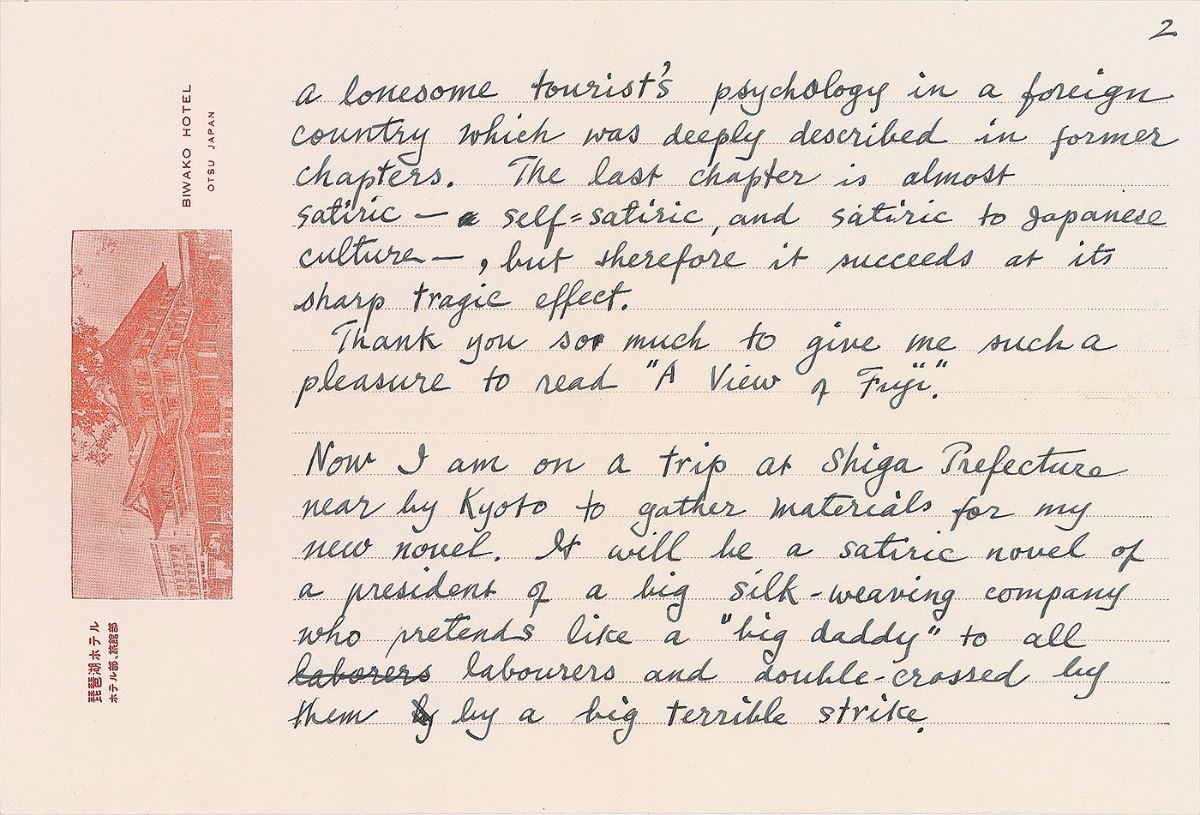 2
BIWAKO HOTEL
OTSU JAPAN
琵琶湖ホテル
ホテル部、旅館部
a lonesome tourist's psychology in a foreign
country which was deeply described in former
chapters. The last chapter is almost
satiric — self=satiric, and satiric to Japanese
culture —, but therefore it succeeds at its
sharp tragic effect.
Thank you so much to give me such a
pleasure to read "A View of Fuji".
Now I am on a trip at Shiga Prefecture
near by Kyoto to gather materials for my
new novel. It will be a satiric novel of
a president of a big silk-weaving company
who pretends like a "big daddy" to all
laborers labourers and double-crossed by
them by by a big terrible strike.